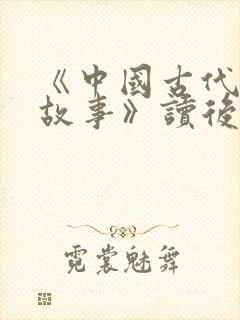 《中國古代
故事》讀後
霓裳魅舞